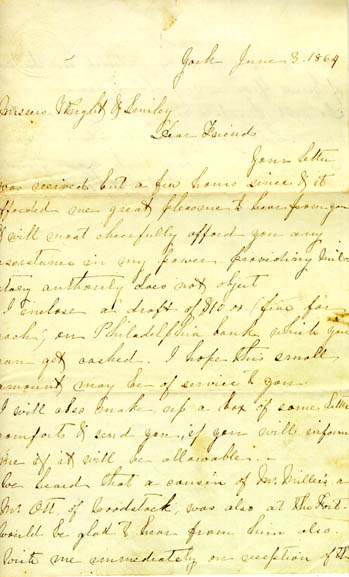 York June 3. 1864
Messrs Wright & Smiley
Dear Friends
Your letter
was recived but a few hours since & it
afforded me great pleasure to hear from you
& will most cheerfully afford you any
assistance in my power providing Mil-
itary authority does not object
I inclose a draft of $10.00 (five for
each) on Philadelphia bank which you
can get cashed. I hope this small
amount may be of service to you
I will also make up a box of some little
comforts & send you, if you will inform
me if it will be allowable.
We heard that a cousin of Mr. Miller's a
Mr. Ott. of Woodstock, was also at the Fort.
would be glad to hear from him also.
Write me immediately on reception of